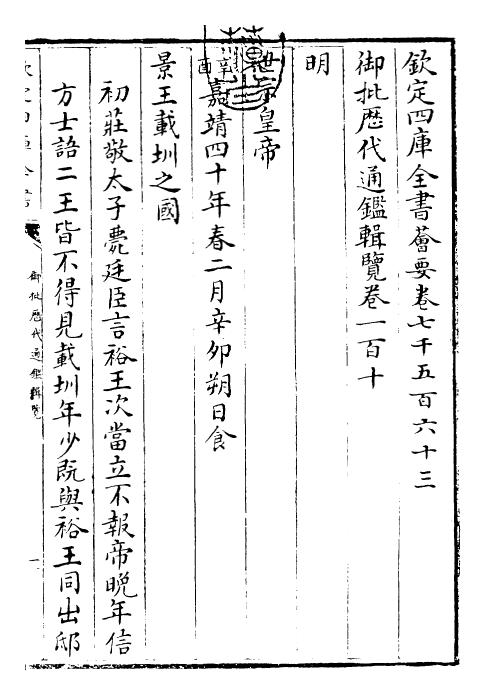 欽定四庫全書薈要卷七千五百六十三
御批歷代通鑑輯覽卷一百十
明
世宗皇帝
辛酉嘉靖四十年春二月辛卯朔日食
景王載圳之國
初莊敬太子薨廷臣言裕王次當立不報帝晚年信
方士語二王皆不得見載圳年少既與裕王同出邸
御批歷代通鑑輯覽
一